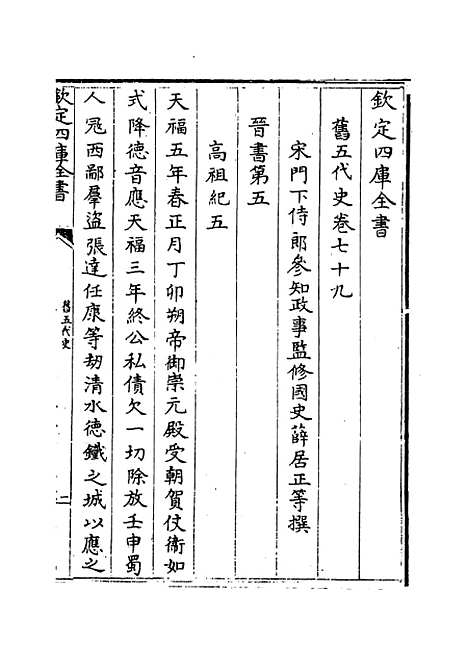 欽定四庫全書
舊五代史卷七十九
宋門下侍郎參知政事監修國史薛居正等撰
晉書第五
高祖紀五
天福五年春正月丁卯朔帝御崇元殿受朝賀仗衞如
式降德音應天福三年終公私債欠一切除放壬申蜀
人冦西鄙羣盜張達任康等劫清水德鐵之城以應之
欽定四庫全書
舊五代史